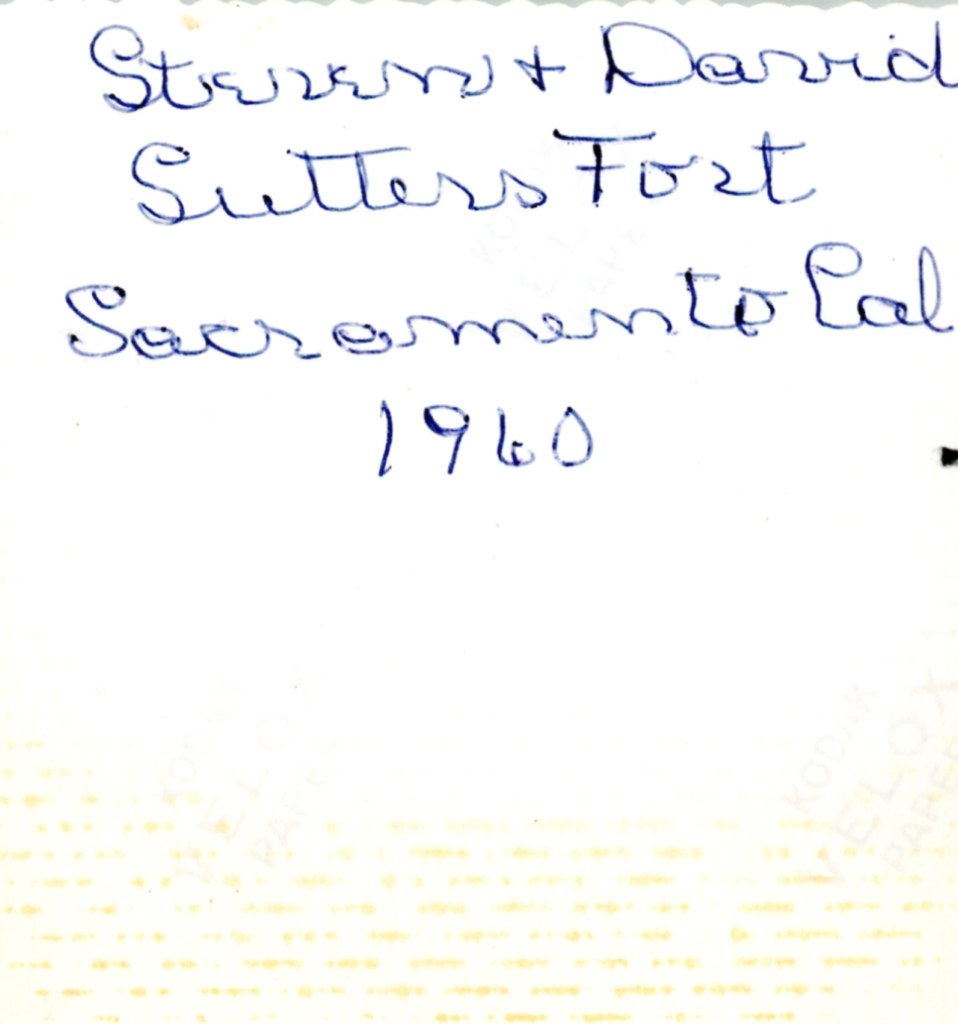 Steven + David
Sutters Fort
Sacramento Cal
1960
KODAK
VELOX
PAPER
KODAK
VELOX
PAPER